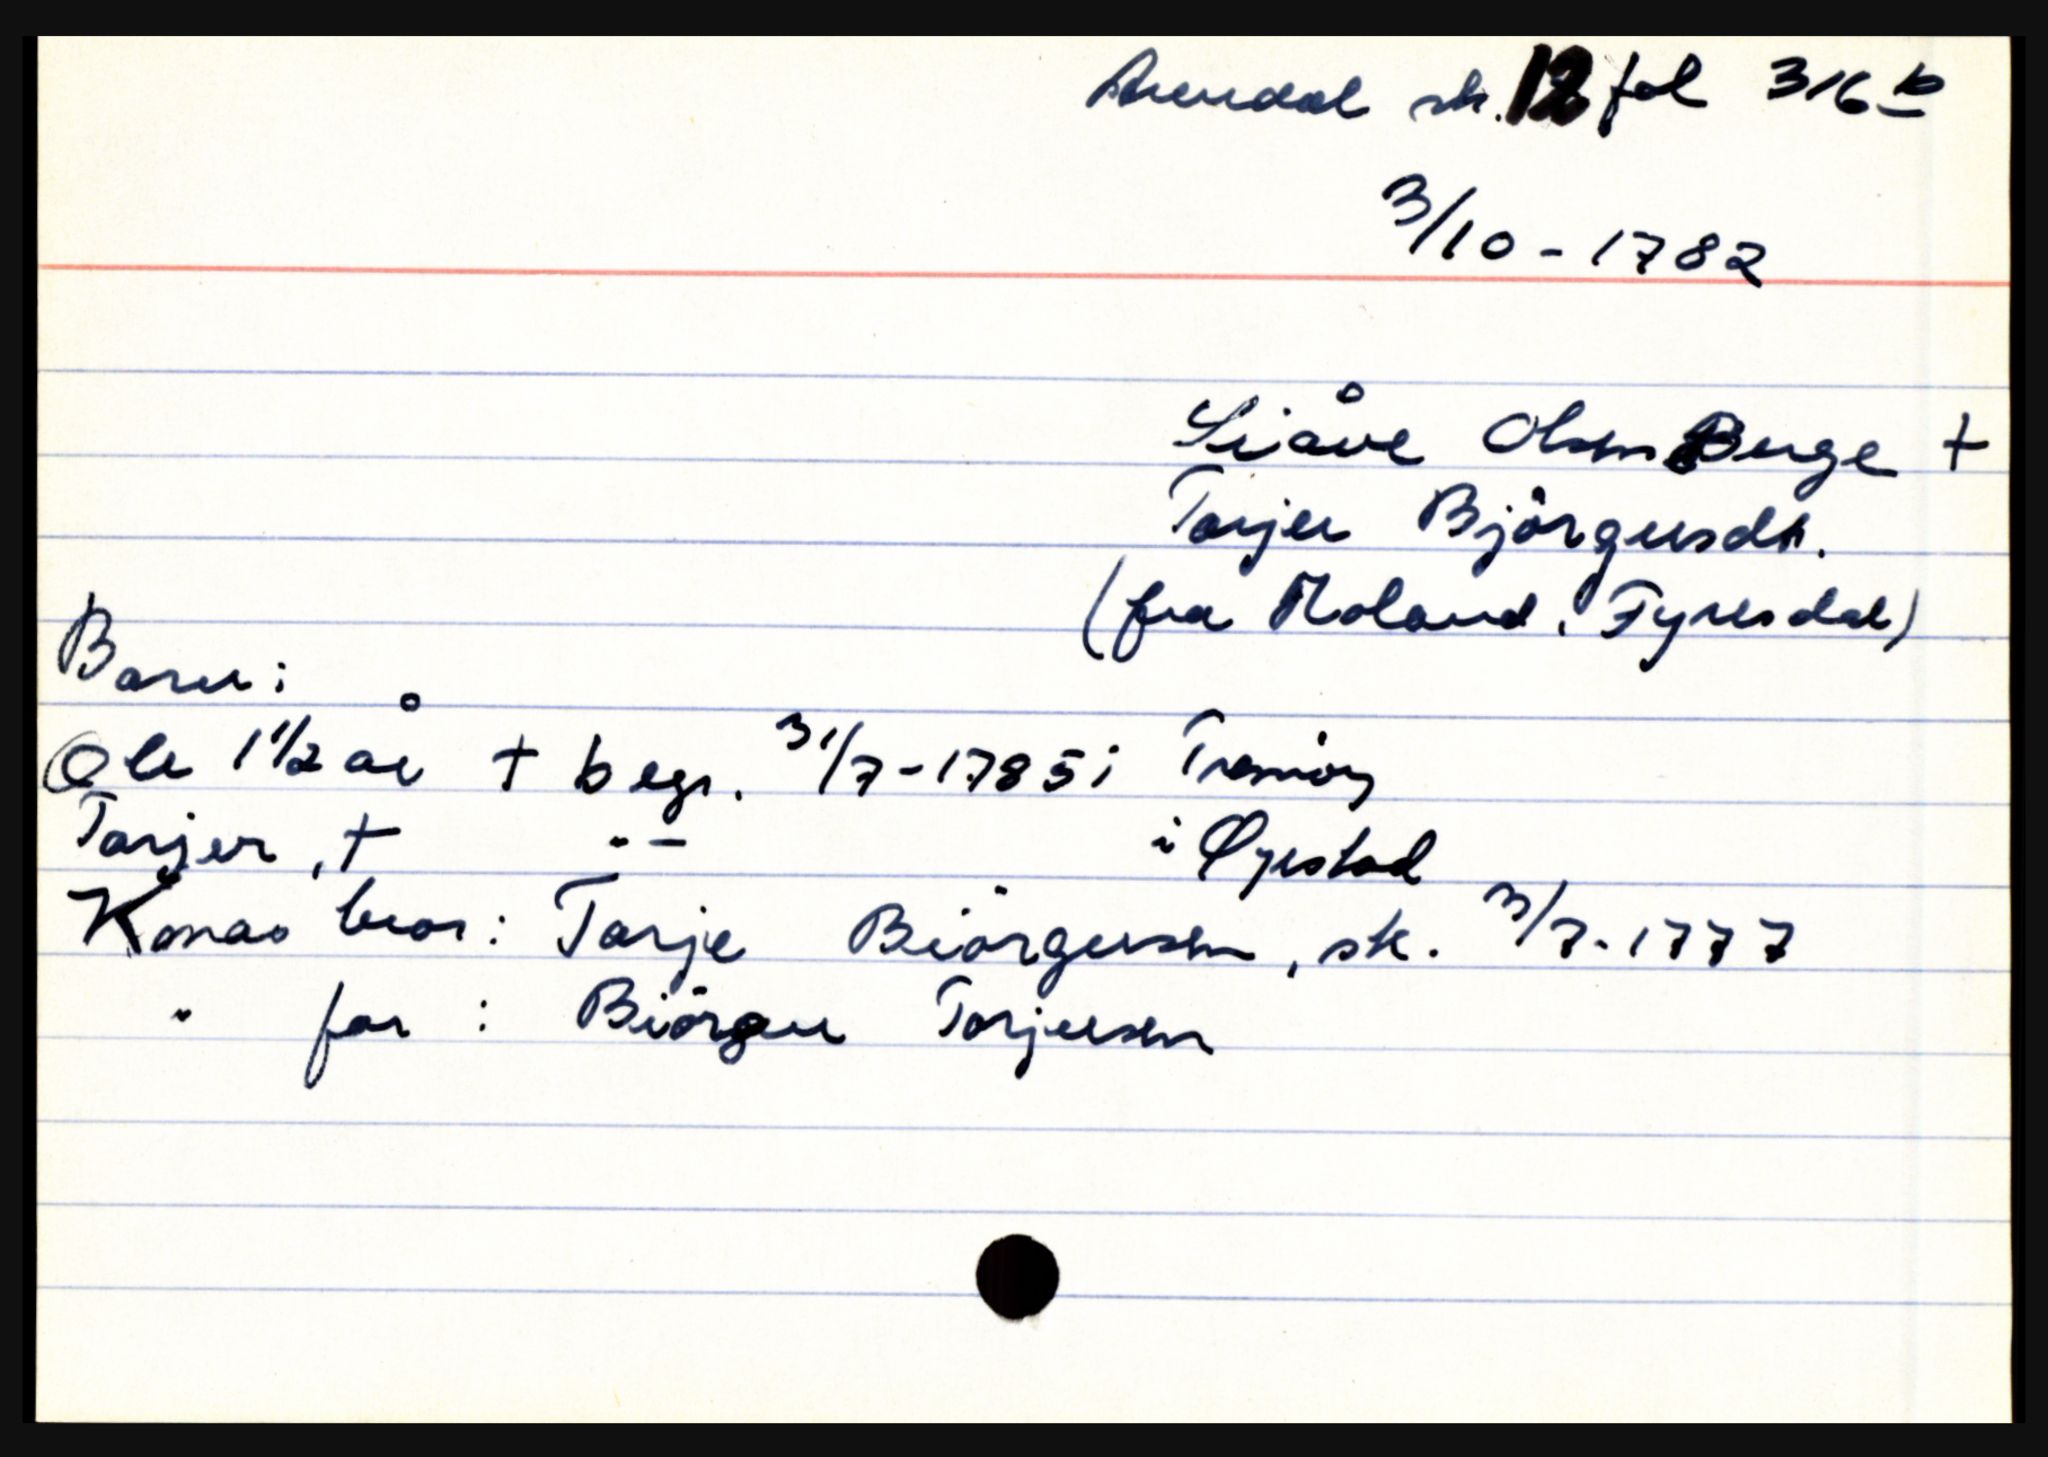 Arendal sk. 12 fol 316 b
3/10 - 1782
Siåve Olsen Berge +
Tarjer Bjørgusdt.
(fra Moland, Fyresdal)
Barn:
Ole 1 1/2 år + begr. 31/7-1785 i Tromöy
Tarjer, + " - i Øyestad
Konas bror: Tarje Biörgusen, sk. 3/7-1777
" far : Biörgu Tarjeusen